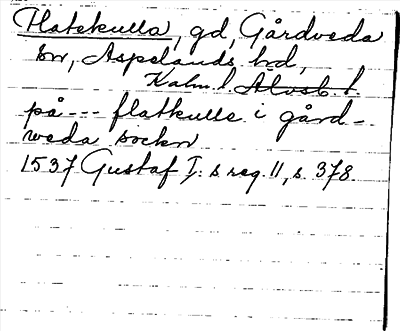 Flatskulla, gd, Gårdveda
sn, Aspelands hrd,
Kalm. l. Älvsb. l.
på --- flatkulle i gård-
weda sockn
1537 Gustaf I:s reg. 11, s. 378.